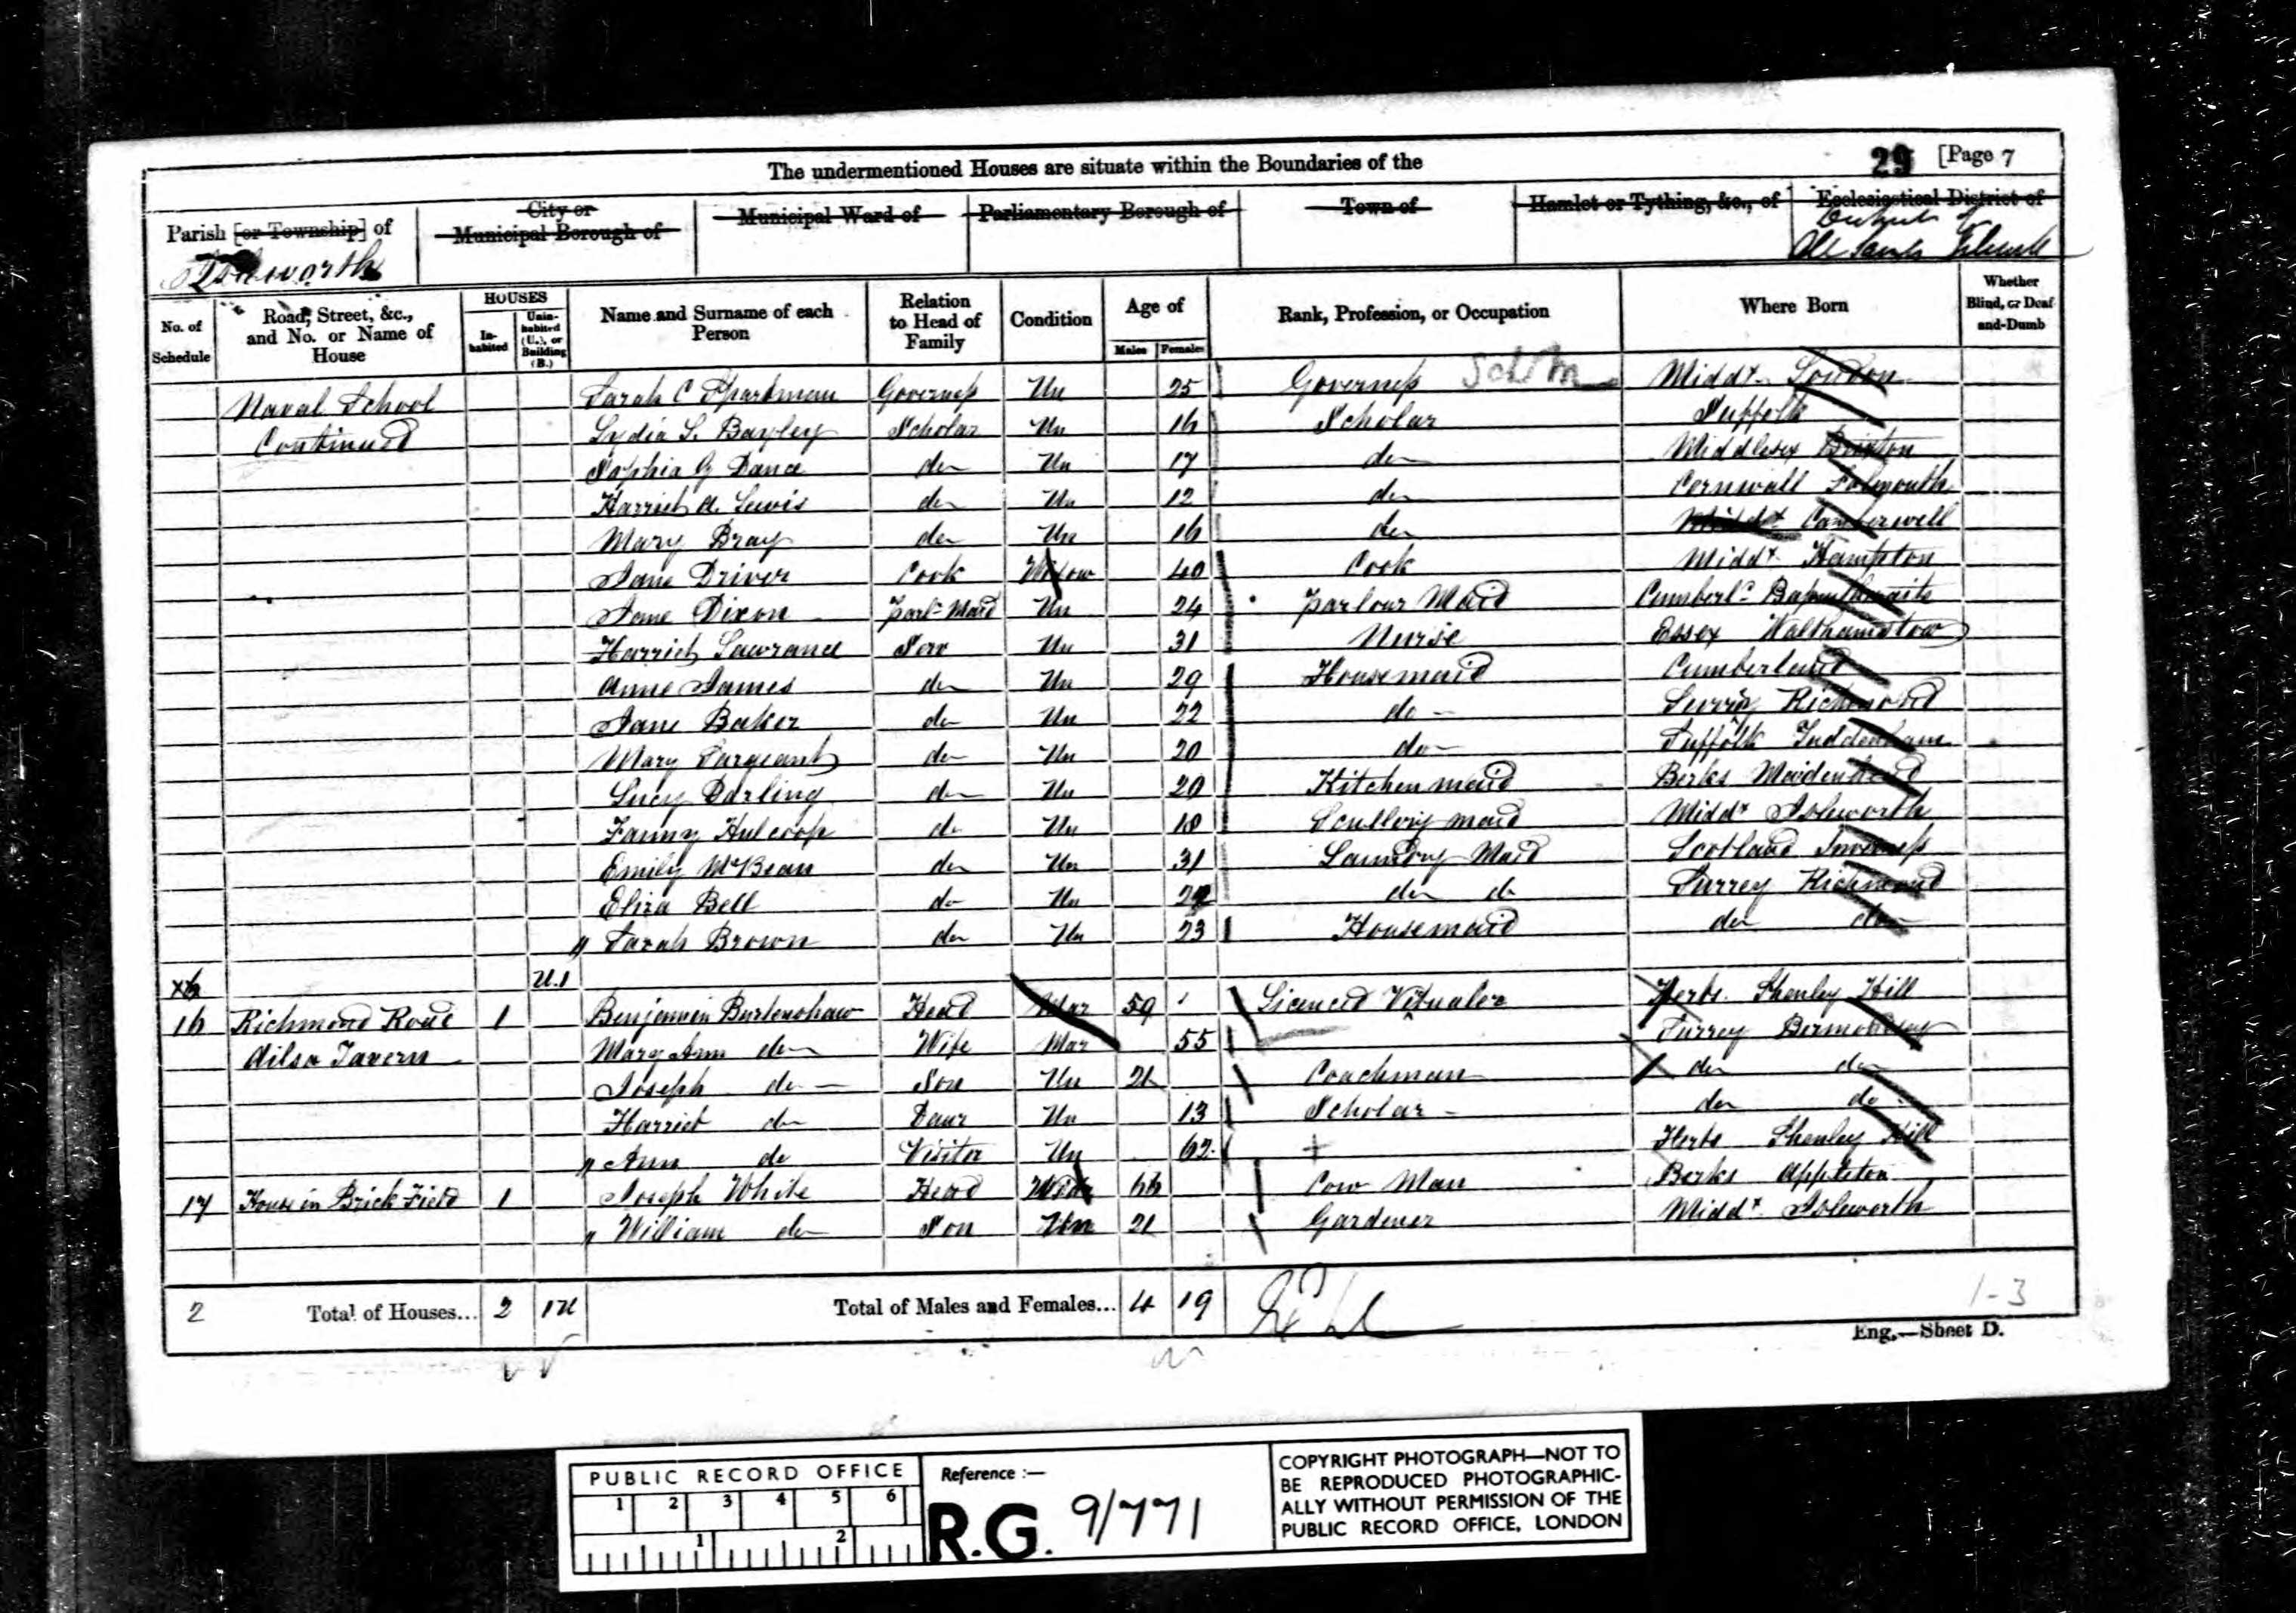 The undermentioned Houses are situate within the Boundaries of the
29 [Page 7
Parish [or Township] of
City or Municipal Borough of
Municipal Ward of
Parliamentary Borough of
Town of
Hamlet or Tything, &c., of
Ecclesiastical District of
Isleworth
All Saints
No. of Schedule
Road, Street, &c., and No. or Name of House
HOUSES
In-habited
Unin-habited (U.), or Building (B.)
Name and Surname of each Person
Relation to Head of Family
Condition
Age of
Males
Females
Rank, Profession, or Occupation
Where Born
Whether Blind, or Deaf-and-Dumb
Naval School Sarah C Sparkman Governess Un 25 Governess Sch M Middx London
Continued Lydia S. Bayley Scholar Un 16 Scholar Suffolk
Sophia G Dance do Un 17 do Middlesex Brixton
Harriet A. Lewis do Un 12 do Cornwall Falmouth
Mary Bray do Un 16 do Middx Camberwell
Jane Driver Cook Widow 40 Cook Middx Hampton
Jane Dixon Parlr Maid Un 24 Parlour Maid Cumberld
Harriet Lawrance Serv Un 31 Nurse Essex Walthamstow
Anne James do Un 29 Housemaid Cumberland
Jane Baker do Un 22 do Surrey Richmond
Mary Sargeant do Un 20 do Suffolk Tuddenham
Lucy Darling do Un 20 Kitchen maid Berks Maidenhead
Fanny Hulcoop do Un 18 Scullery maid Middx Isleworth
Emily McBean do Un 31 Laundry Maid Scotland Inverness
Eliza Bell do Un do do Surrey Richmond
" Sarah Brown do Un 23 Housemaid do do
U.1
16 Richmond Road 1 Benjamin Burtenshaw Head Mar 59 Licenced Vitualer Herts. Shenley Hill
Ailsa Tavern Mary Ann do Wife Mar 55 Surrey Bermondsey
Joseph do Son Un 21 Coachman do do
Harriet do Daur Un 13 Scholar do do
" Ann do Visitor Un 62 + Herts Shenley Hill
17 House in Brick Field 1 Joseph White Head Widr 66 Cow Man Berks Appleton
" William do Son Un 21 Gardener Middx Isleworth
2 Total of Houses... 2 1U Total of Males and Females... 4 19
1-3
Eng.—Sheet D.
PUBLIC RECORD OFFICE
1 2 3 4 5 6
1 2
Reference :—
R.G. 9/771
COPYRIGHT PHOTOGRAPH—NOT TO
BE REPRODUCED PHOTOGRAPHIC-
ALLY WITHOUT PERMISSION OF THE
PUBLIC RECORD OFFICE, LONDON